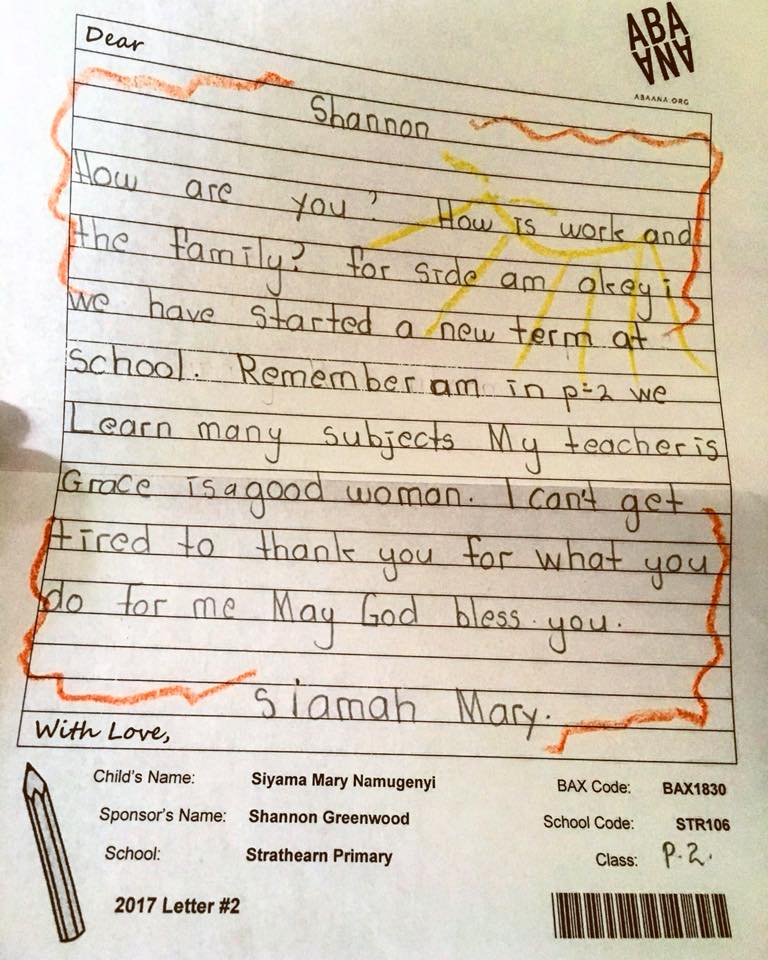 Dear
ABA
ANA
ABAANA.ORG
Shannon
How are you? How is work and
the family? for side am okey i
we have started a new term at
school. Remember am in p=2 we
Learn many subjects My teacher is
Grace is a good woman. I can't get
tired to thank you for what you
do for me May God bless you.
Siamah Mary.
With Love,
Child's Name: Siyama Mary Namugenyi
BAX Code: BAX1830
Sponsor's Name: Shannon Greenwood
School Code: STR106
School: Strathearn Primary
Class: P.2.
2017 Letter #2